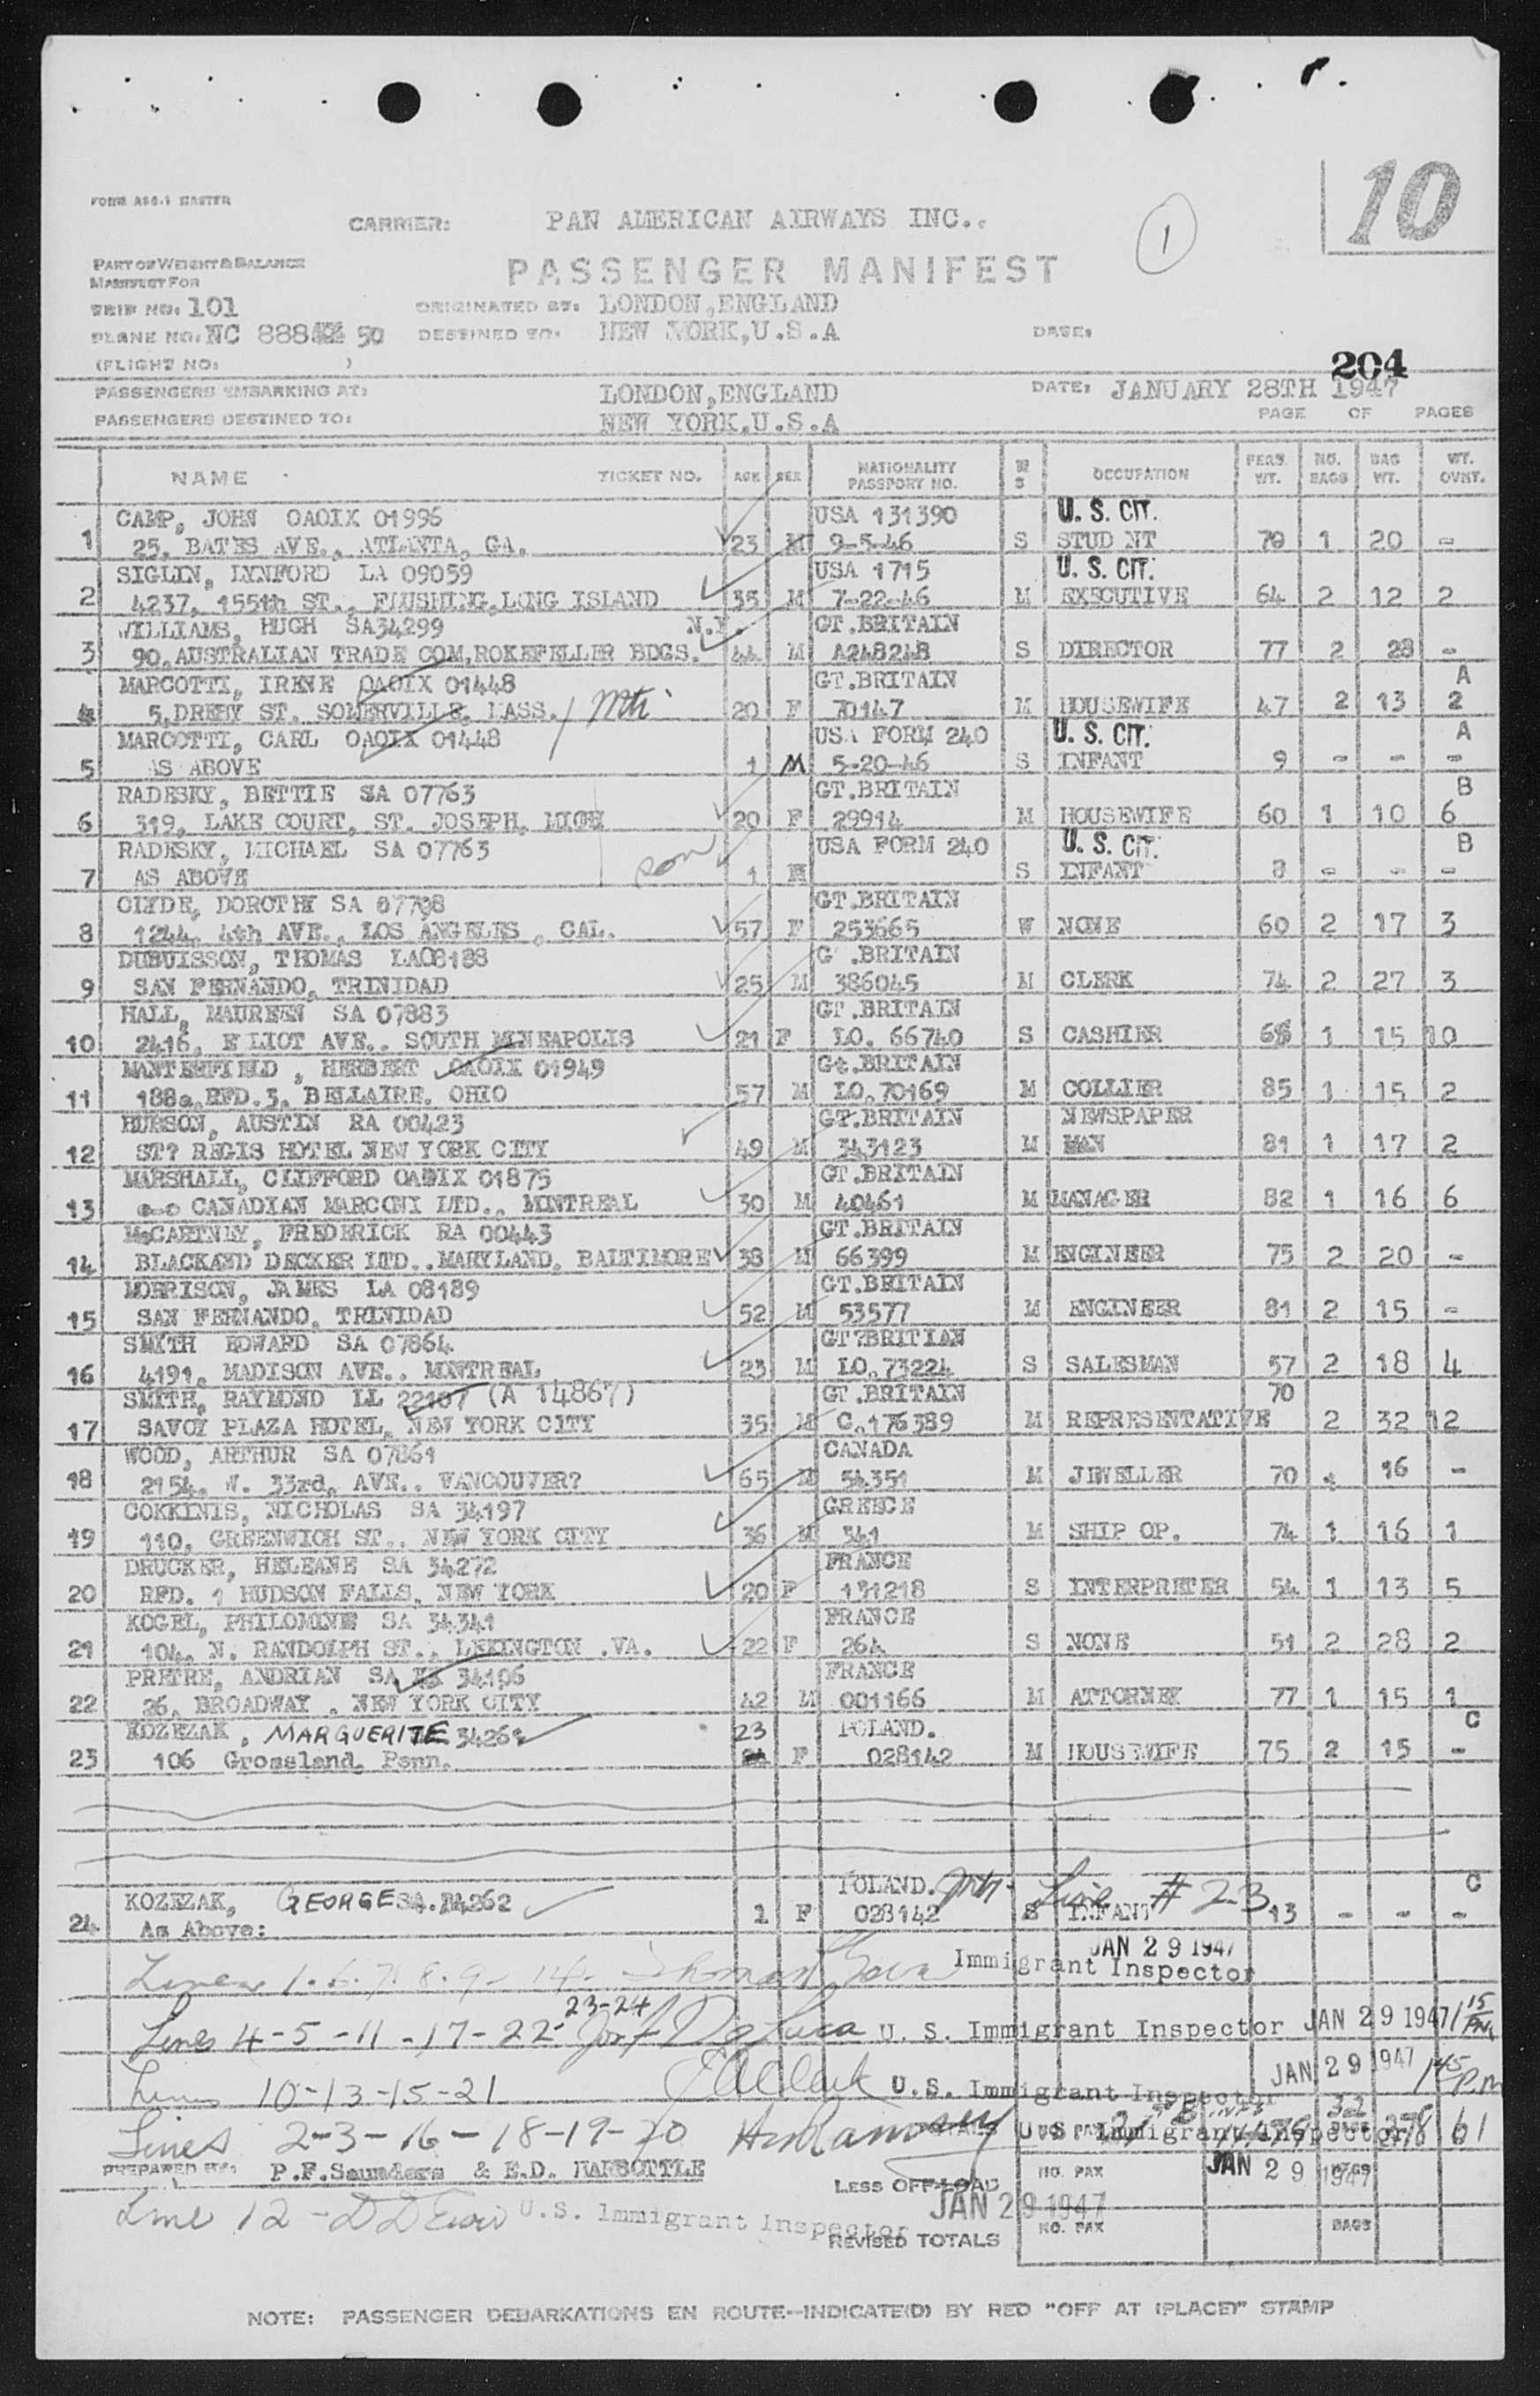 10
FORM ASG-1 MASTER
CARRIER: PAN AMERICAN AIRWAYS INC..
1
PART OF WEIGHT & BALANCE
MANIFEST FOR
PASSENGER MANIFEST
TRIP NO: 101 ORIGINATED AT: LONDON,ENGLAND
PLANE NO: NC 888 50 DESTINED TO: NEW YORK,U.S.A DATE:
(FLIGHT NO: )
204
PASSENGERS EMBARKING AT: LONDON,ENGLAND DATE: JANUARY 28TH 1947
PASSENGERS DESTINED TO: NEW YORK,U.S.A PAGE OF PAGES
NAME TICKET NO. AGE SEX NATIONALITY PASSPORT NO. M S OCCUPATION PERS. WT. NO. BAGS BAG WT. WT. OVWT.
CAMP, JOHN OAOIX 01996 USA 131390 U. S. CIT.
1 25, BATES AVE., ATLANTA, GA. 23 M 9-5-46 S STUD NT 70 1 20 -
SIGLIN, LYNFORD LA 09059 USA 1715 U. S. CIT.
2 4237, 155th ST., FLUSHING,LONG ISLAND 35 M 7-22-46 M EXECUTIVE 64 2 12 2
WILLIAMS, HUGH SA34299 N.Y. GT.BRITAIN
3 90,AUSTRALIAN TRADE COM,ROKEFELLER BDGS. 44 M A248248 S DIRECTOR 77 2 28 -
MARCOTTI, IRENE OAOIX 01448 GT.BRITAIN A
4 5,DREBY ST. SOMERVILLE, MASS. 20 F 70147 M HOUSEWIFE 47 2 13 2
MARCOTTI, CARL OAOIX 01448 USA FORM 240 U. S. CIT. A
5 AS ABOVE 1 M 5-20-46 S INFANT 9 - - -
RADESKY, BETTIE SA 07763 GT.BRITAIN B
6 319, LAKE COURT, ST. JOSEPH, MICH 20 F 29914 M HOUSEWIFE 60 1 10 6
RADESKY, MICHAEL SA 07763 son USA FORM 240 U. S. CIT. B
7 AS ABOVE 1 M S INFANT 8 - - -
CLYDE, DOROTHY SA 07798 GT.BRITAIN
8 1244, 4th AVE., LOS ANGELES , CAL. 57 F 253665 W NONE 60 2 17 3
DUBUISSON, THOMAS LA08188 G .BRITAIN
9 SAN FERNANDO, TRINIDAD 25 M 386045 M CLERK 74 2 27 3
HALL, MAUREEN SA 07883 GT.BRITAIN
10 2416, E LIOT AVE., SOUTH MINEAPOLIS 21 F LO. 66740 S CASHIER 1 15 10
MANTERFIELD , HERBERT OAOIX 01949 Gt.BRITAIN
11 188a,RFD.3, BELLAIRE, OHIO 57 M LO.70169 M COLLIER 85 1 15 2
HURSON, AUSTIN RA 00423 GT.BRITAIN NEWSPAPER
12 ST? REGIS HOTEL NEW YORK CITY 49 M 343123 M MAN 81 1 17 2
MARSHALL, CLIFFORD OAOIX 01875 GT.BRITAIN
13 CANADIAN MARCONI LTD., MONTREAL 30 M 40461 M MANAGER 82 1 16 6
McCARTNEY, FREDERICK RA 00443 GT.BRITAIN
14 BLACKAND DECKER LTD., MARYLAND, BALTIMORE 38 M 66399 M ENGINEER 75 2 20 -
MORRISON, JAMES LA 08189 GT.BRITAIN
15 SAN FERNANDO, TRINIDAD 52 M 53577 M ENGINEER 81 2 15 -
SMITH EDWARD SA 07864 GT?BRITIAN
16 4191, MADISON AVE., MONTREAL 23 M LO.73224 S SALESMAN 57 2 18 4
SMITH, RAYMOND LL 22107 (A 14867) GT.BRITAIN 70
17 SAVOY PLAZA HOTEL, NEW YORK CITY 35 M C.176389 M REPRESENTATIVE 2 32 12
WOOD, ARTHUR SA 07861 CANADA
18 2154, W. 33rd, AVE., VANCOUVER? 65 M 54351 M JEWELLER 70 16 -
COKKINIS, NICHOLAS SA 34197 GREECE
19 110, GREENWICH ST., NEW YORK CITY 36 M 341 M SHIP OP. 74 1 16 1
DRUCKER, HELEANE SA 34272 FRANCE
20 RFD. 1 HUDSON FALLS, NEW YORK 20 F 131218 S INTERPRETER 54 1 13 5
KOGEL, PHILOMINE SA 34341 FRANCE
21 104, N. RANDOLPH ST., LEXINGTON .VA. 22 F 264 S NONE 51 2 28 2
PRETRE, ANDRIAN SA 34106 FRANCE
22 26, BROADWAY , NEW YORK CITY 42 M 001166 M ATTORNEY 77 1 15 1
KOZEZAK , MARGUERITE 34261 23 POLAND. C
23 106 Grossland, Penn. F 028142 M HOUSEWIFE 75 2 15 -
KOZEZAK, GEORGE SA.34262 POLAND. Line # 23 C
24 As Above: 1 F 028142 S INFANT 13 - - -
JAN 29 1947
Lines 1.6.7.8.9-14- Immigrant Inspector
23-24
Lines 4-5-11-17-22 U. S. Immigrant Inspector JAN 29 1947 1 15 PM
JAN 29 1947 1 45 PM
Lines 10-13-15-21 U.S. Immigrant Inspector
Lines 2-3-16-18-19-20 U S Immigrant Inspector 32 278 61
PREPARED BY: P.F.Saunders & E.D. HARBOTTLE
LESS OFF-LOAD NO. PAX JAN 29 1947
JAN 29 1947
Line 12 - U.S. Immigrant Inspector
REVISED TOTALS NO. PAX BAGS
NOTE: PASSENGER DEBARKATIONS EN ROUTE--INDICATE(D) BY RED "OFF AT (PLACE)" STAMP